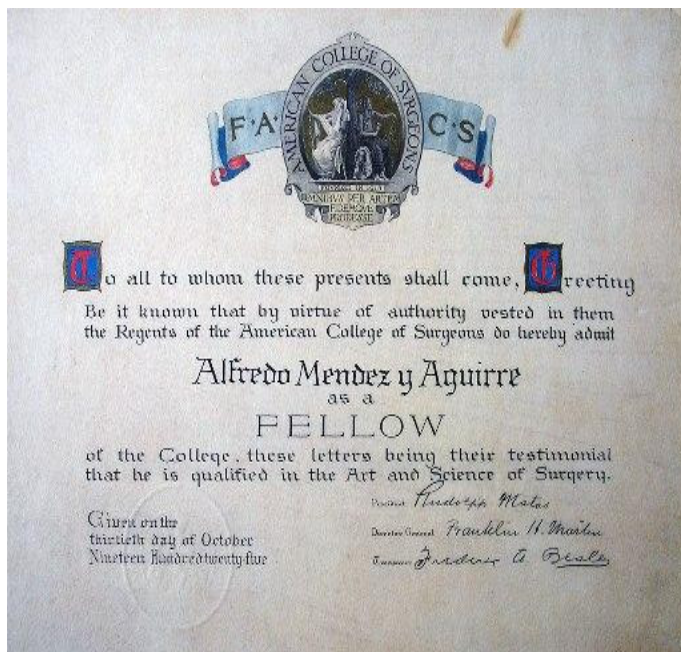 F·A
C·S
AMERICAN COLLEGE OF SURGEONS
OMNIBVS PER ARTEM
FIDEMQVE
PRODESSE
To all to whom these presents shall come, Greeting
Be it known that by virtue of authority vested in them
the Regents of the American College of Surgeons do hereby admit
Alfredo Mendez y Aguirre
as a
FELLOW
of the College, these letters being their testimonial
that he is qualified in the Art and Science of Surgery.
Given on the
thirtieth day of October
Nineteen Hundred twenty-five
President Rudolph Matas
Director General Franklin H. Martin
Treasurer Frederic A. Besley